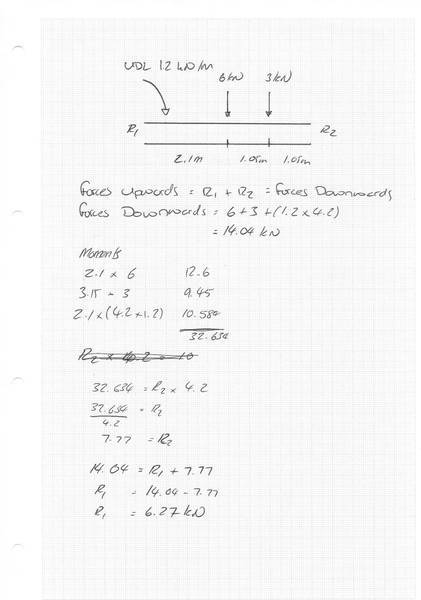 UDL 1.2 kN/m
6kN 3kN
R1 R2
2.1m 1.05m 1.05m
Forces Upwards = R1 + R2 = Forces Downwards
Forces Downwards = 6 + 3 + (1.2 x 4.2)
= 14.04 kN
Moments
2.1 x 6 12.6
3.15 x 3 9.45
2.1 x (4.2 x 1.2) 10.584
32.634
R2 x 4.2 = 10
32.634 = R2 x 4.2
32.634 = R2
4.2
7.77 = R2
14.04 = R1 + 7.77
R1 = 14.04 - 7.77
R1 = 6.27 kN